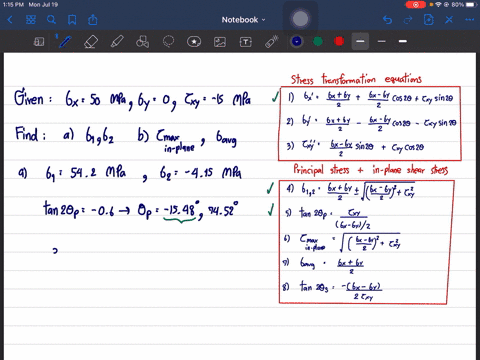 1:15 PM Mon Jul 19
80%
Notebook
Given : σx = 50 MPa, σy = 0, τxy = -15 MPa
Find : a) σ1, σ2 b) τmax in-plane , σavg
a) σ1 = 54.2 MPa , σ2 = -4.15 MPa
tan 2θp = -0.6 → θp = -15.48°, 74.52°
Stress transformation equations
✓ 1) σx' = (σx + σy)/2 + (σx - σy)/2 cos 2θ + τxy sin 2θ
2) σy' = (σx + σy)/2 - (σx - σy)/2 cos 2θ - τxy sin 2θ
3) τx'y' = (σx - σy)/2 sin 2θ + τxy cos 2θ
Principal stress + in-plane shear stress
✓ 4) σ1,2 = (σx + σy)/2 ± √(((σx - σy)/2)² + τxy²)
✓ 5) tan 2θp = τxy/((σx - σy)/2)
6) τmax in-plane = √(((σx - σy)/2)² + τxy²)
7) σavg = (σx + σy)/2
8) tan 2θs = -(σx - σy)/(2τxy)